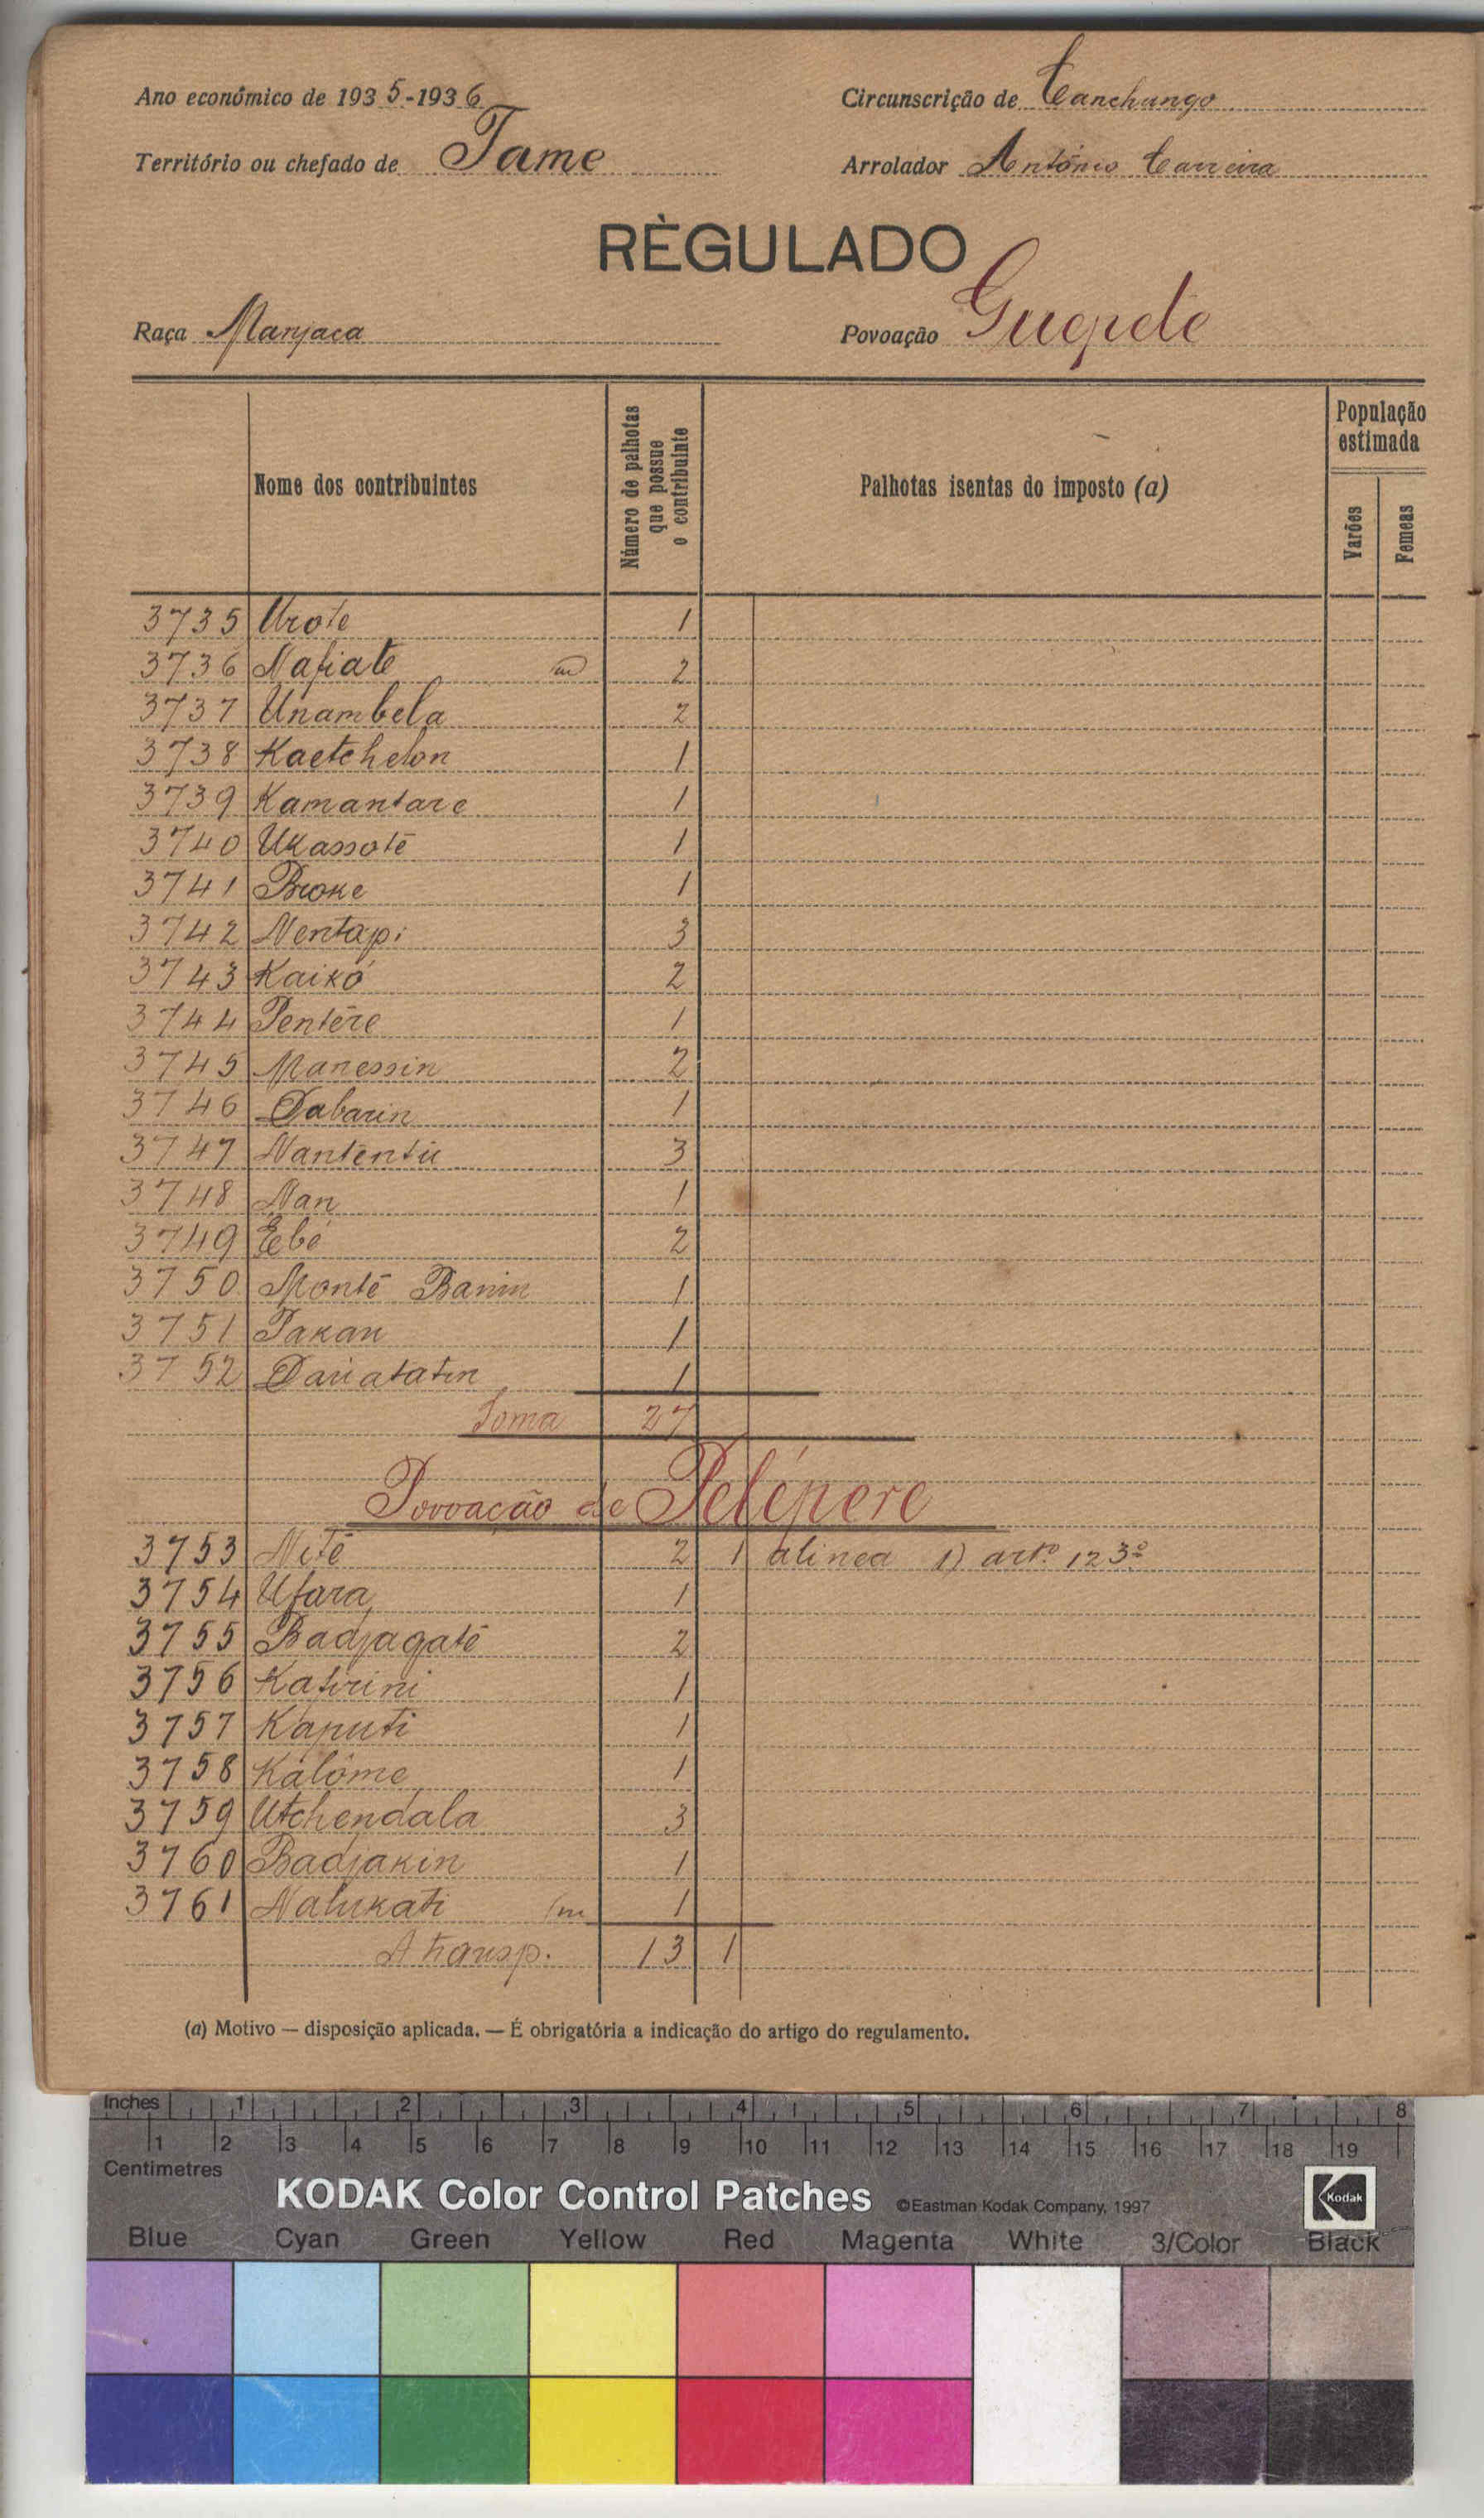 Ano económico de 1935-1936
Circunscrição de Canchungo
Território ou chefado de Tame
Arrolador António Carreira
RÈGULADO
Raça Manjaca
Povoação Guepele
Nome dos contribuintes
Número de palhotas que possue o contribuinte
Palhotas isentas do imposto (a)
População estimada
Varões
Femeas
3735 Urote 1
3736 Nafiate (m 2
3737 Unambela 2
3738 Kaetchelon 1
3739 Kamantare 1
3740 Ukassotê 1
3741 Broke 1
3742 Nentapi 3
3743 Kaikó 2
3744 Pentêre 1
3745 Manessin 2
3746 Dabarin 1
3747 Nantentú 3
3748 Nan 1
3749 Ebé 2
3750 Montê Banin 1
3751 Takan 1
3752 Dariatatin 1
Soma 27
Povoação de Pelépere
3753 Nitê 2 1 alinea 1) artº 123º
3754 Ufara 1
3755 Badjagatê 2
3756 Katirini 1
3757 Kaputi 1
3758 Kálôme 1
3759 Utchendala 3
3760 Badjakin 1
3761 Nalukati (m 1
A transp. 13 1
(a) Motivo — disposição aplicada. — É obrigatória a indicação do artigo do regulamento.
Inches 1 2 3 4 5 6 7 8
1 2 3 4 5 6 7 8 9 10 11 12 13 14 15 16 17 18 19
Centimetres
KODAK Color Control Patches ©Eastman Kodak Company, 1997 Kodak
Blue Cyan Green Yellow Red Magenta White 3/Color Black